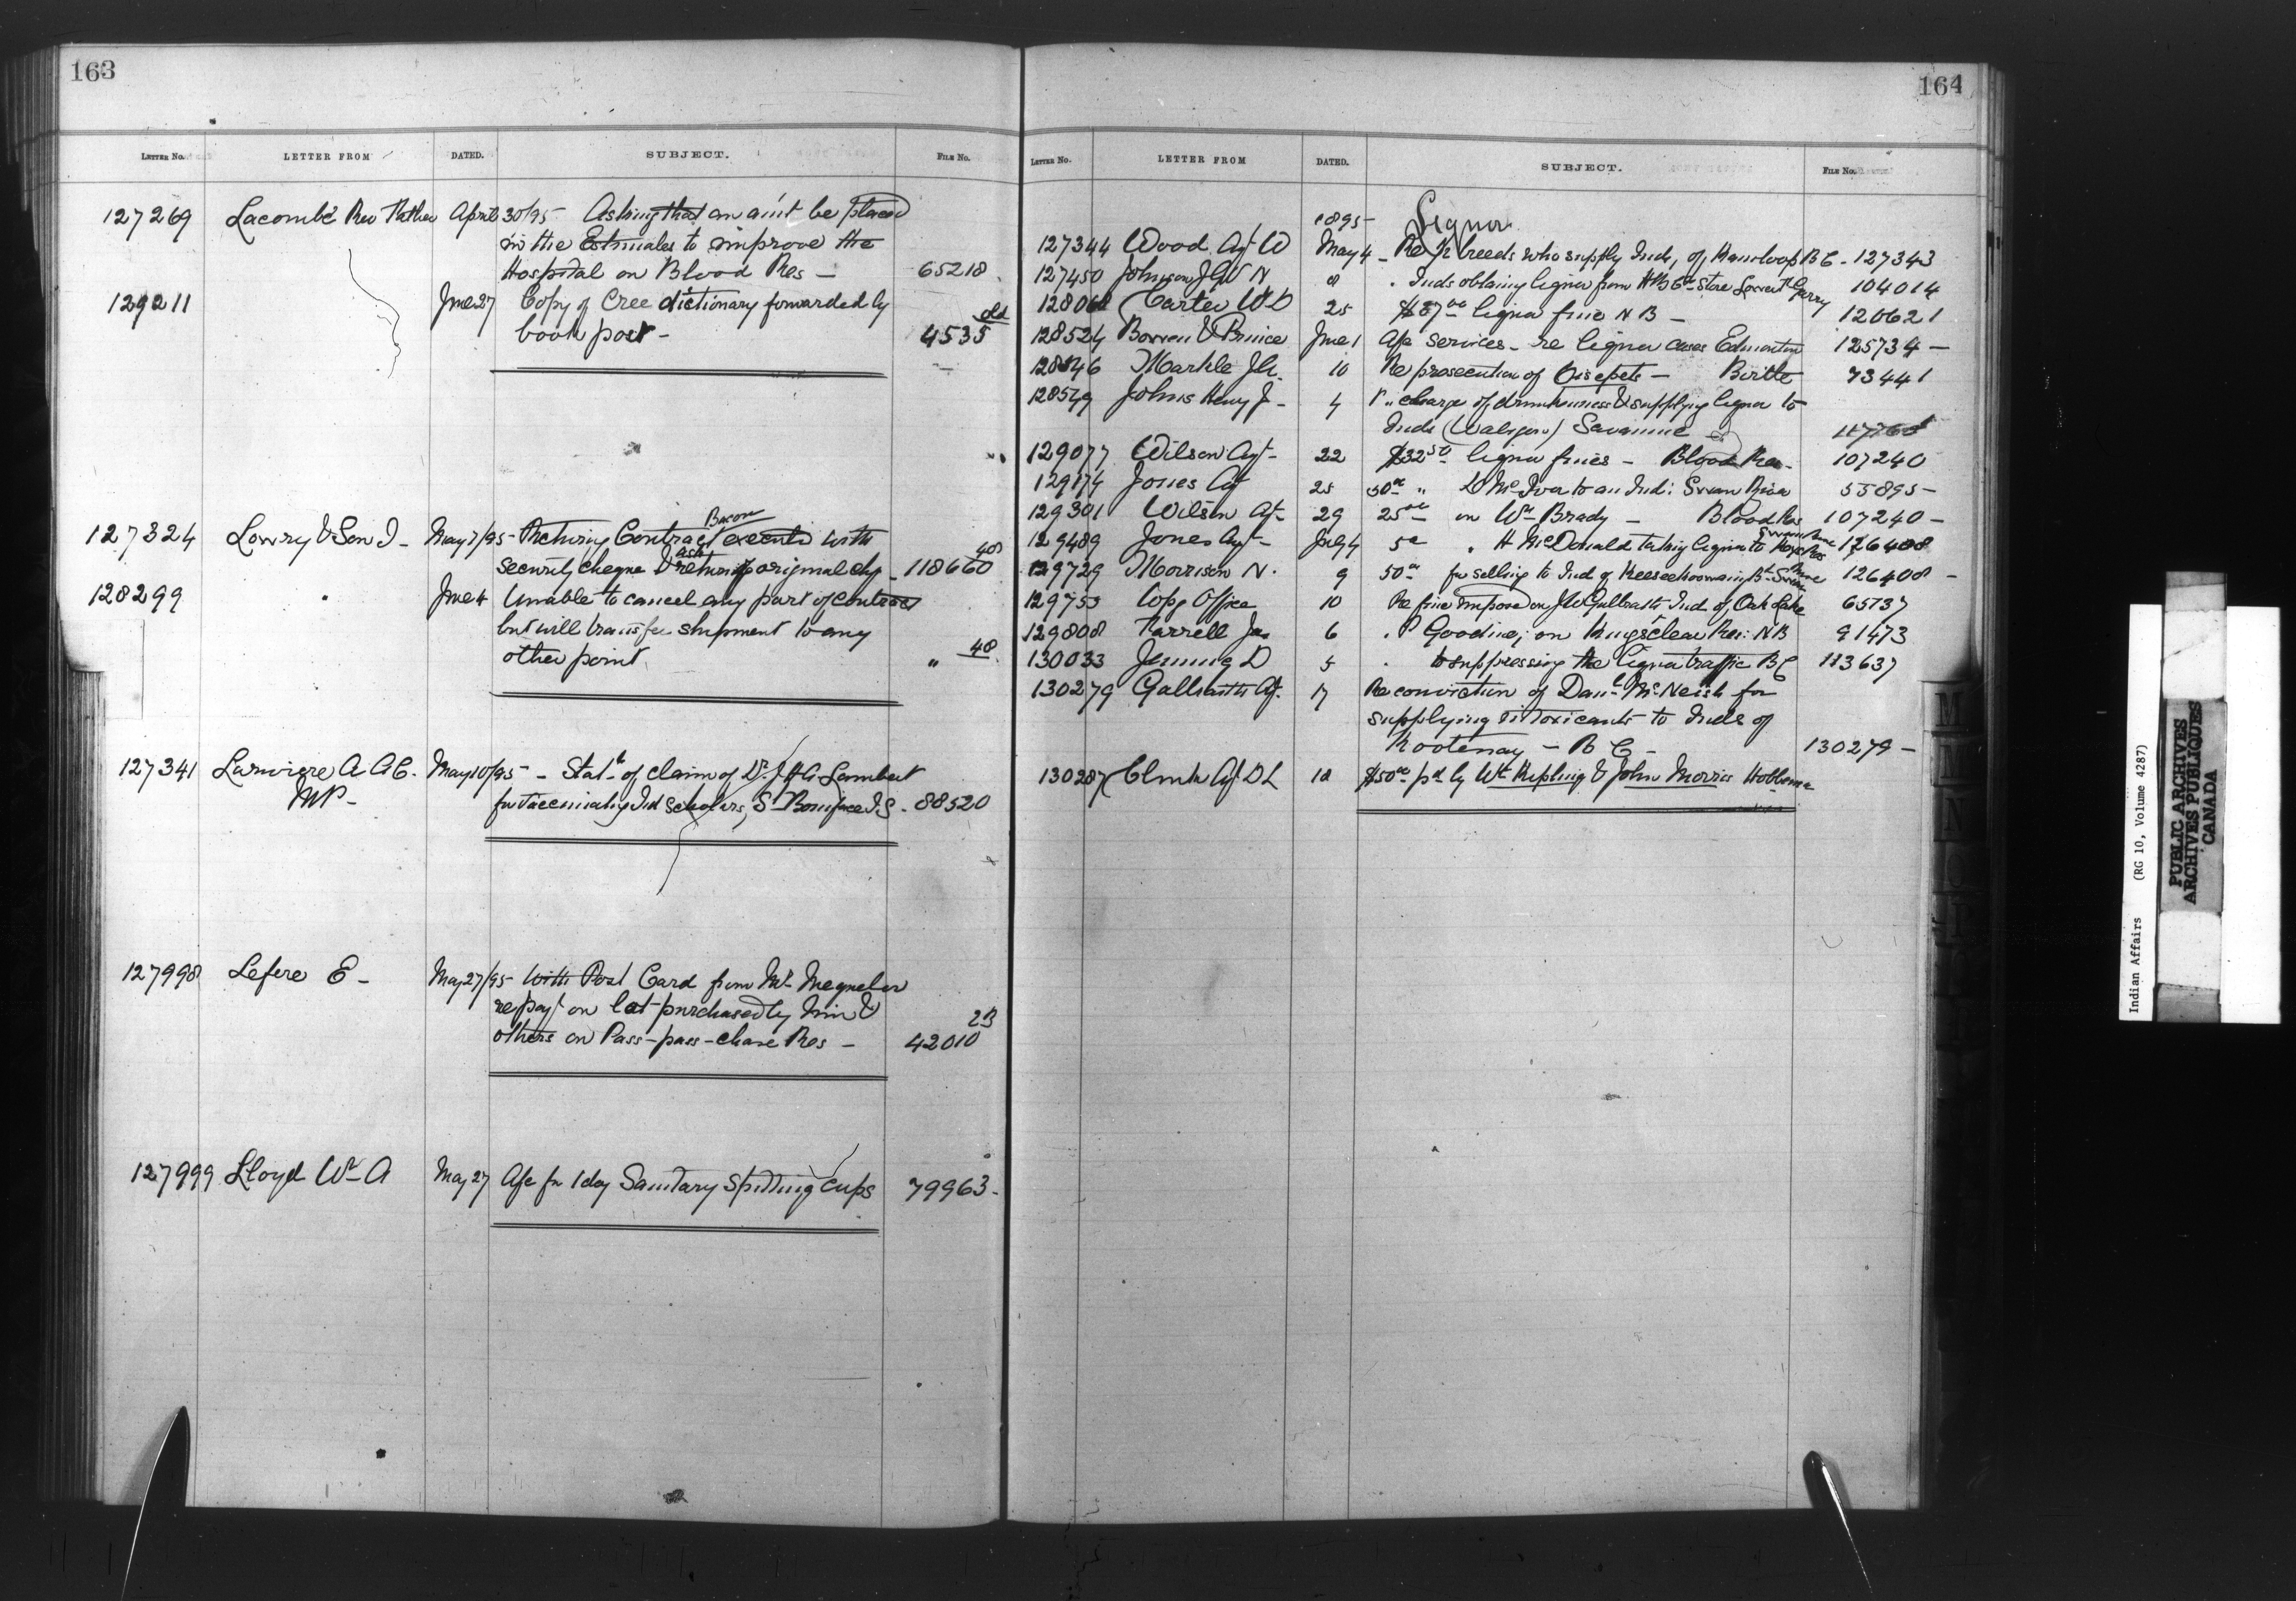 163
LETTER No. LETTER FROM DATED. SUBJECT. FILE No.
127269 Lacombe Rev Father April 30/95 - Asking that an am't be placed
in the Estimates to improve the
Hospital on Blood Res - 65218
129211 June 27 Copy of Cree dictionary forwarded by
book post - 4535 old
127324 Lowry & Son J - May 7/95 - Returning Contract Bacon executed with
security cheque & ask return of original chq - 118660 40
128299 " June 4 Unable to cancel any part of contract
but will transfer shipment to any
other point " 40
127341 Lariviere A A C. May 10/95 - Stat. of claim of Dr. J H A Lambert
MP -
for vaccinating Ind scholars, St Boniface I.S. - 88520
127998 Lefere E - May 27/95 - With Post Card from Mr
re payt on lot purchased by him &
others on Pass-pass-chase Res - 42010 2B
127999 Lloyd Wm A May 27 A/c for 1 doz Sanitary Spitting cups 79963 -
164
LETTER No. LETTER FROM DATED. SUBJECT. FILE No.
1895 - Liquor
127344 Wood Agt W May 4 - Re 1/2 breeds who supply Inds, of Kamloops B C - 127343
127450 Johnson N 8 " Inds obtaining liquor from H B Co Store Lower Ft Garry 104014
128068 Carter W D 25 $87 00 liquor fine N B - 120621
128524 Bowen & Prince June 1 A/c services - re liquor cases Edmonton 125734 -
128546 Markle J A. 10 Re prosecution of - Birtle 73441
128549 Johns Henry J - 4 " charge of drunkenness & supplying liquor to
Inds Savanne
129077 Wilson Agt - 22 $32 50 liquor fines - Blood Res - 107240
129174 Jones Agt 25 50 00 " D McIver to an Ind: Swan River 55895 -
129301 Wilson Agt - 29 25 00 on Wm Brady - Blood Res 107240 -
129489 Jones Agt - July 4 5 00 " H McDonald taking liquor to Keys Res Swan River 126408
129729 Morrison N. 9 50 00 for selling to Ind of Keeseekoowenin Bd 126408 -
129753 Comr Office 10 Re fine imposed on J W Galbraith Ind of Oak Lake 65137
129808 Farrell Jas 6 " P Goodine, on Kingsclear Res: N B 91473
130033 Jenning D 5 " to suppressing the liquor traffic B C 113637
130279 Galbraith Agt. 17 Re conviction of Danl McNeish for
supplying intoxicants to Inds of
Kootenay - B C - 130279 -
130287 Clink Agt D L 18 $50 00 pd by Wm Kipling & John Morris Hobbema
Indian Affairs (RG 10, Volume 4287)
PUBLIC ARCHIVES
ARCHIVES PUBLIQUES
CANADA